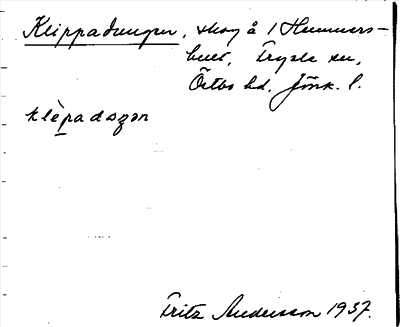 Klippadungen, skog å 1 Hummers-
hult, Tryde sn,
Östbo hd. Jönk. l.
klèpadsŋən
Fritz Andersson 1937.